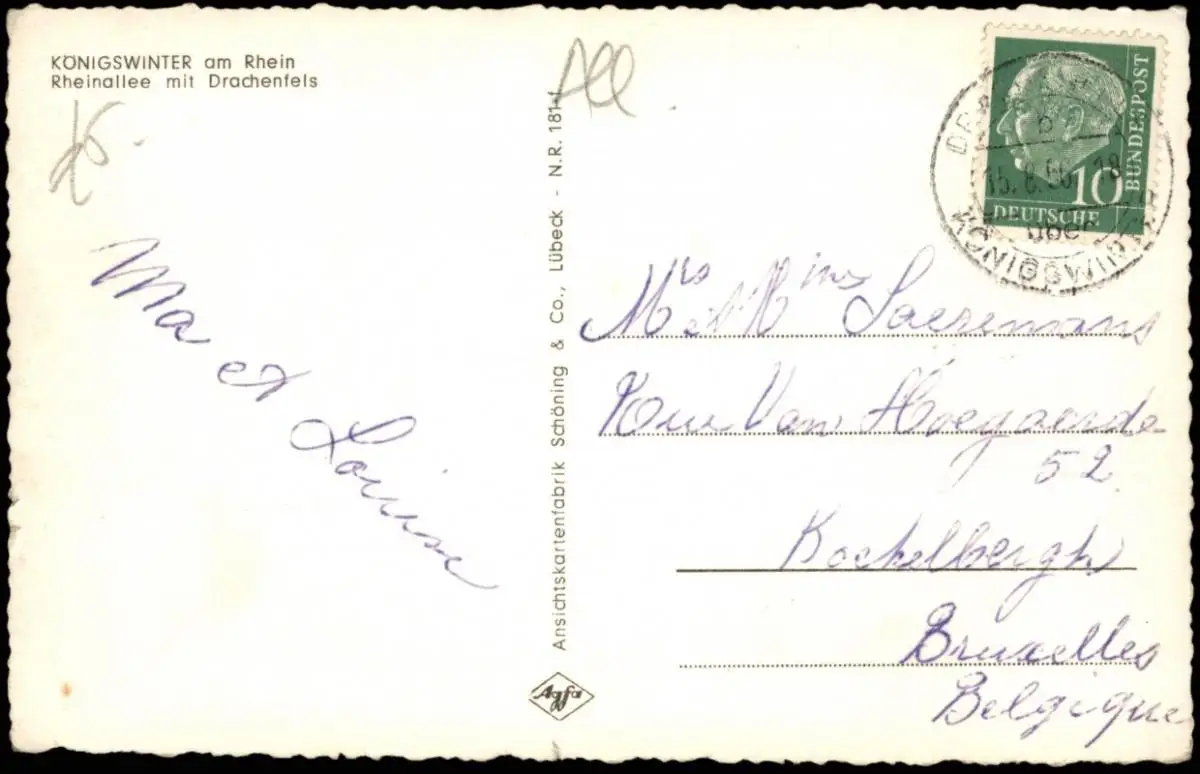 KÖNIGSWINTER am Rhein
Rheinallee mit Drachenfels
Ma et
Louise
Ansichtskartenfabrik Schöning & Co., Lübeck - N.R. 181 f
Agfa
All
DEUTSCHE
BUNDESPOST
10
15.8.56. 18
über
KÖNIGSWINTER
Mrs Saeremans
Rue Van Hoegaerde
52
Koekelbergh
Bruxelles
Belgique